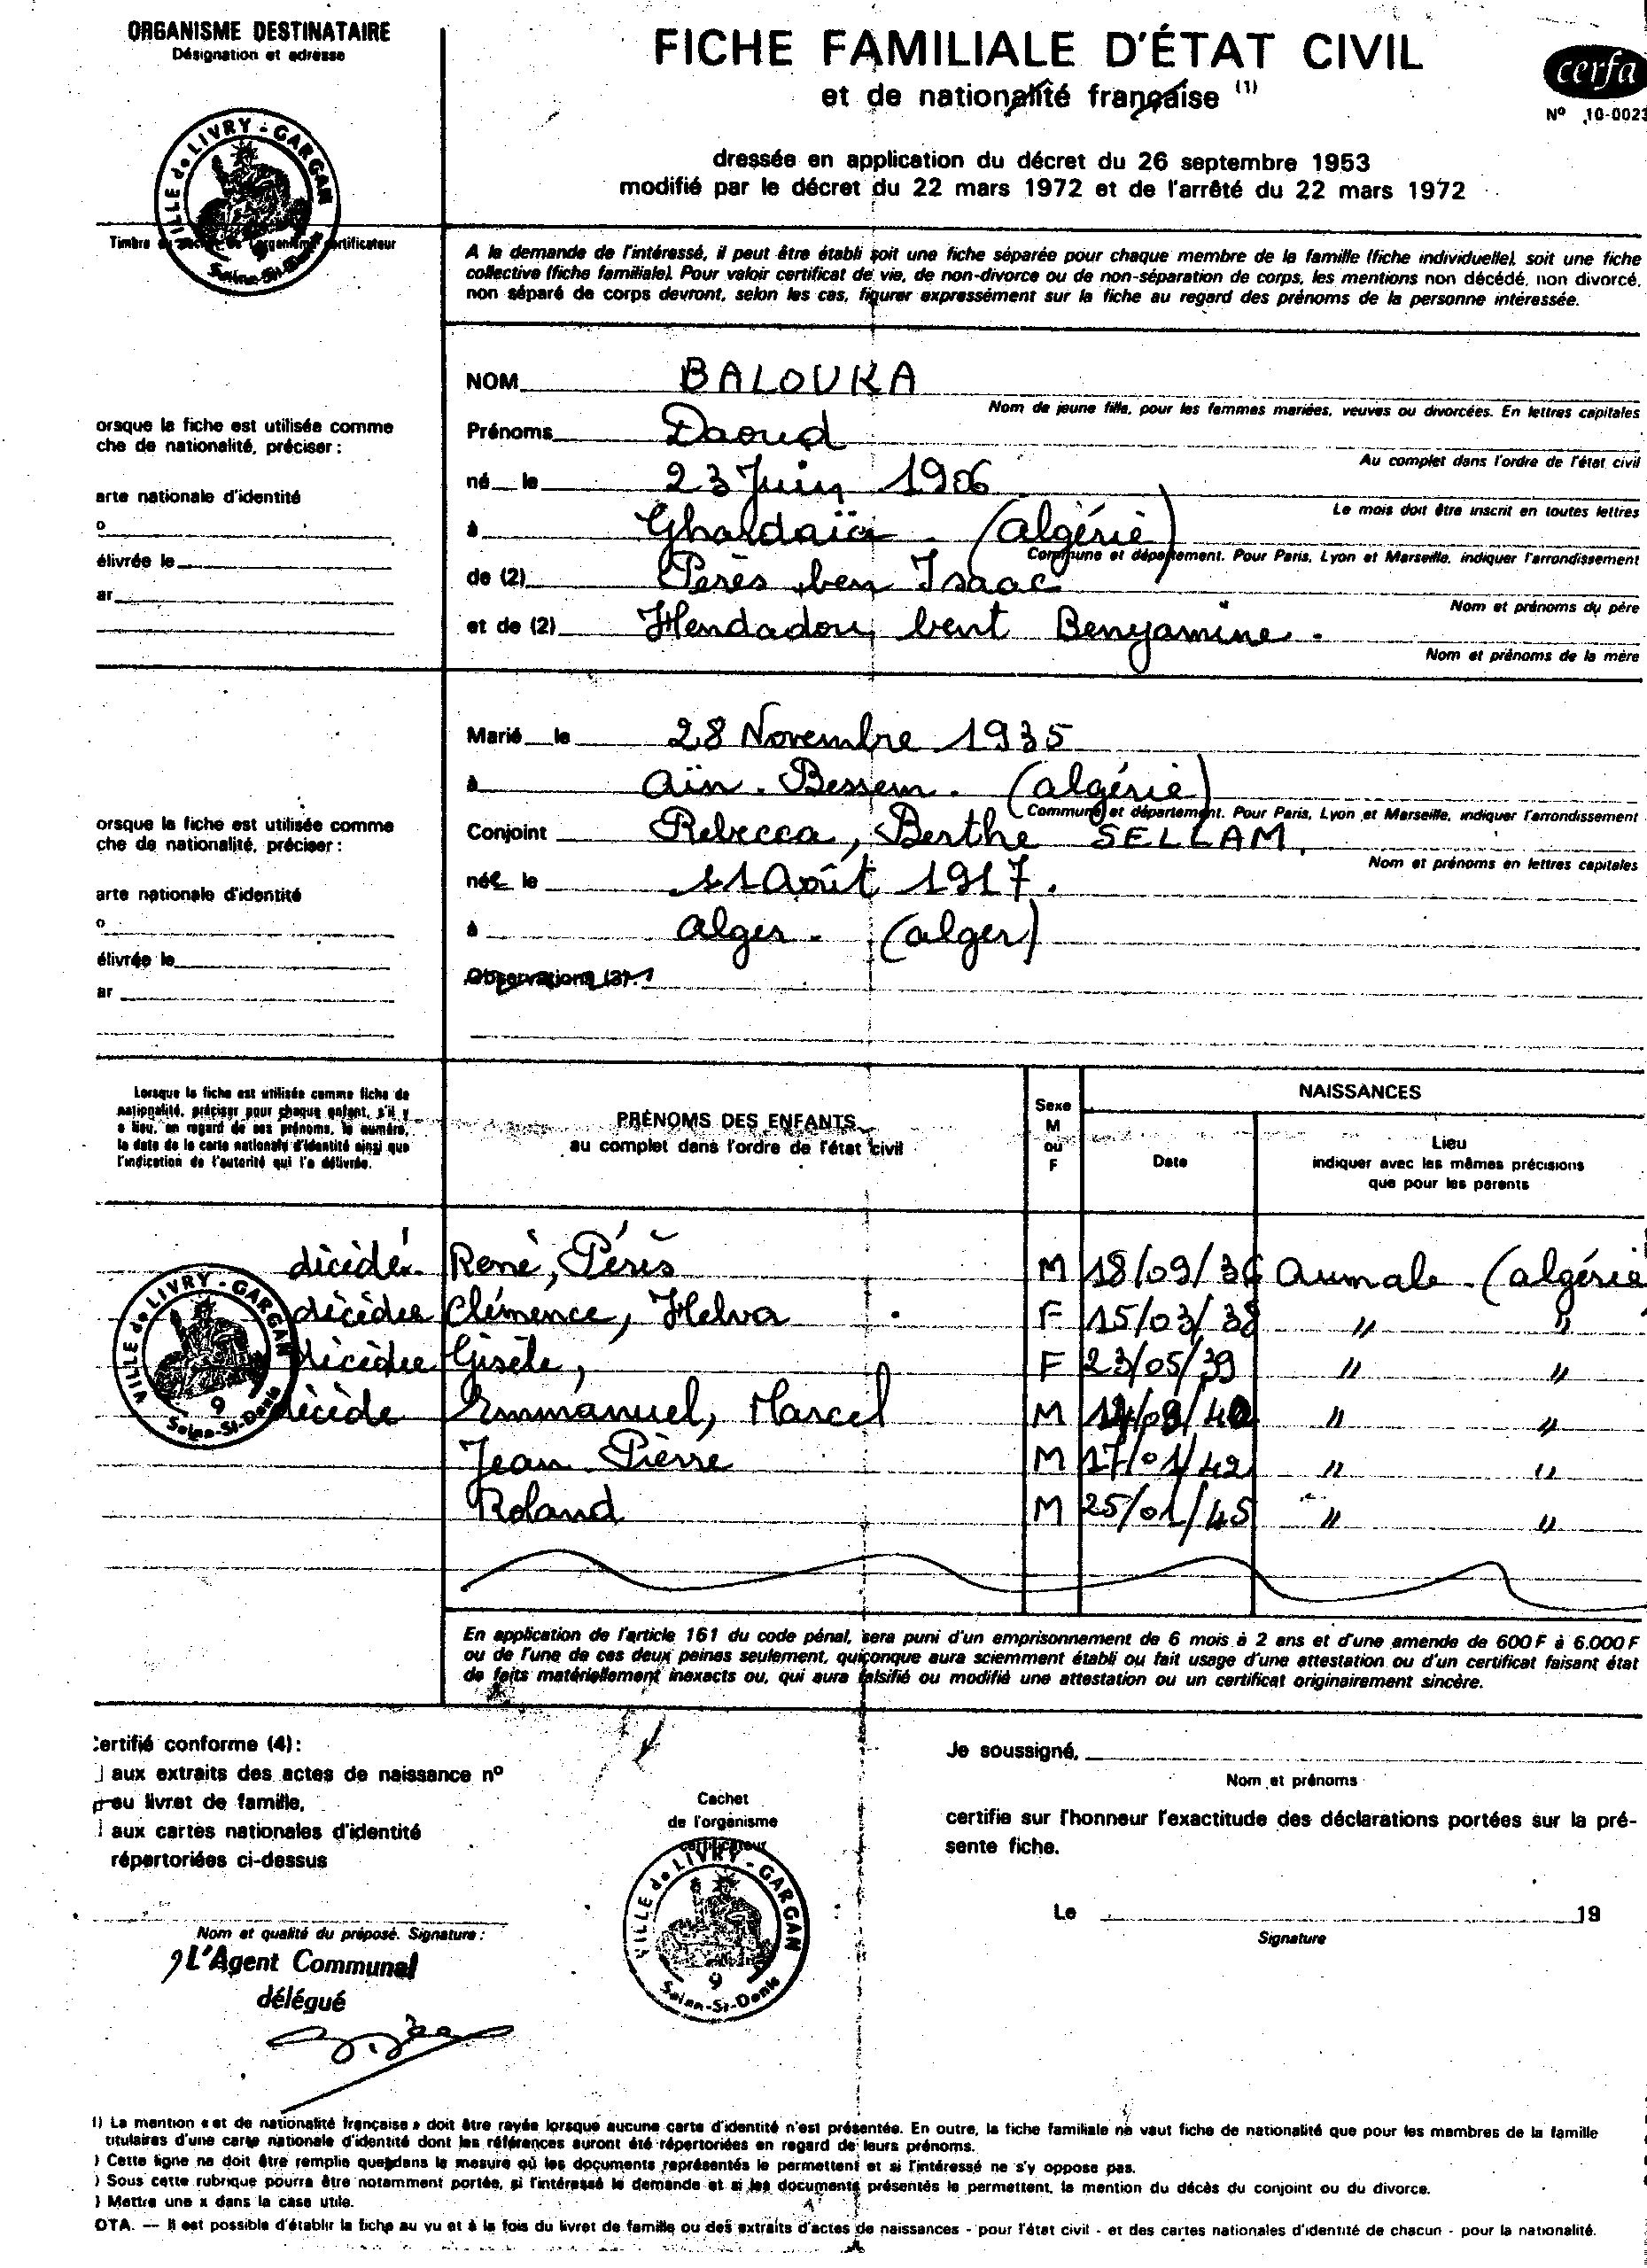 ORGANISME DESTINATAIRE
Désignation et adresse
FICHE FAMILIALE D'ÉTAT CIVIL
et de nationalité française (1)
cerfa
Nº 10-0023
dressée en application du décret du 26 septembre 1953
modifié par le décret du 22 mars 1972 et de l'arrêté du 22 mars 1972
VILLE de LIVRY-GARGAN
Seine-St-Denis
Timbre
A la demande de l'intéressé, il peut être établi soit une fiche séparée pour chaque membre de la famille (fiche individuelle), soit une fiche
collective (fiche familiale). Pour valoir certificat de vie, de non-divorce ou de non-séparation de corps, les mentions non décédé, non divorcé,
non séparé de corps devront, selon les cas, figurer expressément sur la fiche au regard des prénoms de la personne intéressée.
NOM BALOUKA
Nom de jeune fille, pour les femmes mariées, veuves ou divorcées. En lettres capitales
Prénoms Daoud
Au complet dans l'ordre de l'état civil
né le 23 Juin 1906
Le mois doit être inscrit en toutes lettres
à Ghardaïa (algérie)
Commune et département. Pour Paris, Lyon et Marseille, indiquer l'arrondissement
de (2) Perès ben Isaac
Nom et prénoms du père
et de (2) Hendadou bent Benyamine.
Nom et prénoms de la mère
orsque la fiche est utilisée comme
che de nationalité, préciser :
arte nationale d'identité
o
élivrée le
ar
Marié le 28 Novembre 1935
à aïn. Bessem. (algérie)
Commune et département. Pour Paris, Lyon et Marseille, indiquer l'arrondissement
Conjoint Rebecca, Berthe SELLAM,
Nom et prénoms en lettres capitales
née le 11 Août 1917.
à alger. (alger)
Observations (3) :
orsque la fiche est utilisée comme
che de nationalité, préciser :
arte nationale d'identité
o
élivrée le
ar
Lorsque la fiche est utilisée comme fiche de
nationalité, préciser pour chaque enfant, s'il y
a lieu, en regard de ses prénoms, le numéro,
la date de la carte nationale d'identité ainsi que
l'indication de l'autorité qui l'a délivrée.
PRÉNOMS DES ENFANTS
au complet dans l'ordre de l'état civil
Sexe
M
ou
F
NAISSANCES
Date
Lieu
indiquer avec les mêmes précisions
que pour les parents
décédé. René, Pérès M 18/09/36 Aumale (algérie
décédée Clémence, Helva F 15/03/38 " "
décédée Gisèle, F 23/05/39 " "
décédé Emmanuel, Marcel M " "
Jean Pierre M 17/01/42 " "
Roland M 25/01/45 " "
VILLE de LIVRY-GARGAN
9
Seine-St-Denis
En application de l'article 161 du code pénal, sera puni d'un emprisonnement de 6 mois à 2 ans et d'une amende de 600 F à 6.000 F
ou de l'une de ces deux peines seulement, quiconque aura sciemment établi ou fait usage d'une attestation ou d'un certificat faisant état
de faits matériellement inexacts ou, qui aura falsifié ou modifié une attestation ou un certificat originairement sincère.
ertifié conforme (4) :
aux extraits des actes de naissance nº
au livret de famille,
aux cartes nationales d'identité
répertoriées ci-dessus
Nom et qualité du préposé. Signature :
L'Agent Communal
délégué
Cachet
de l'organisme
certificateur
VILLE de LIVRY-GARGAN
9
Seine-St-Denis
Je soussigné,
Nom et prénoms
certifie sur l'honneur l'exactitude des déclarations portées sur la pré-
sente fiche.
Le 19
Signature
1) La mention « et de nationalité française » doit être rayée lorsque aucune carte d'identité n'est présentée. En outre, la fiche familiale ne vaut fiche de nationalité que pour les membres de la famille
titulaires d'une carte nationale d'identité dont les références auront été répertoriées en regard de leurs prénoms.
) Cette ligne ne doit être remplie que dans la mesure où les documents représentés le permettent et si l'intéressé ne s'y oppose pas.
) Sous cette rubrique pourra être notamment portée, si l'intéressé le demande et si les documents présentés le permettent, la mention du décès du conjoint ou du divorce.
) Mettre une x dans la case utile.
OTA. — Il est possible d'établir la fiche au vu et à la fois du livret de famille ou des extraits d'actes de naissances - pour l'état civil - et des cartes nationales d'identité de chacun - pour la nationalité.